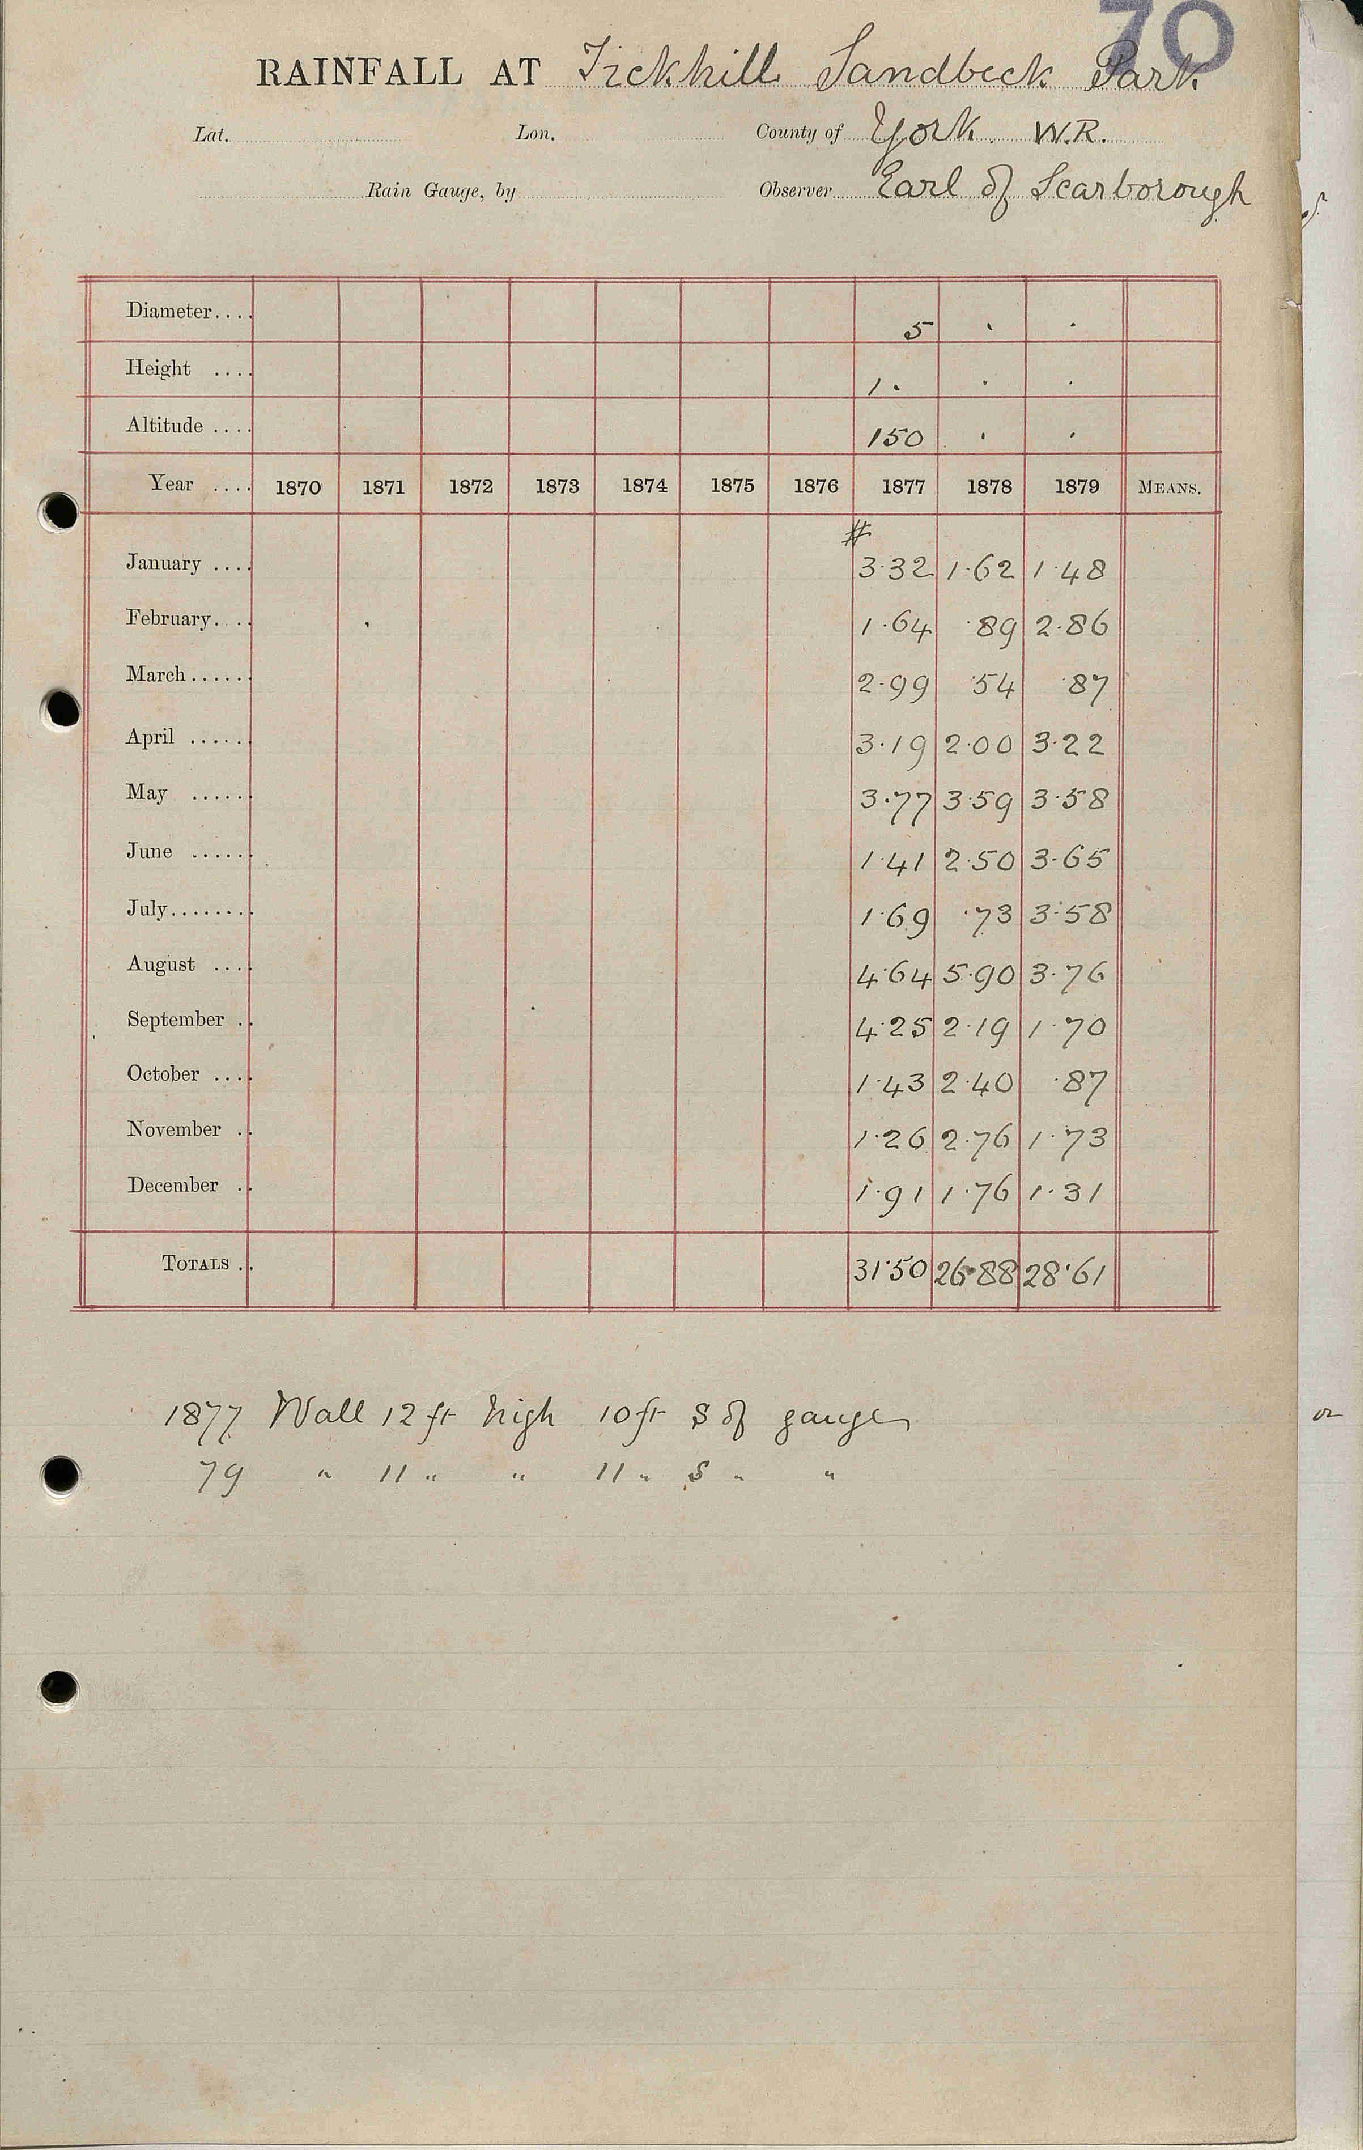 70
RAINFALL AT Tickhill Sandbeck Park
Lat. Lon. County of York W.R.
Rain Gauge, by Observer Earl of Scarborough
Diameter.... 5 . .
Height .... 1. . .
Altitude .... 150 . .
Year .... 1870 1871 1872 1873 1874 1875 1876 1877 1878 1879 MEANS.
#
January .... 3.32 1.62 1.48
February.... .. 1.64 .89 2.86
March...... 2.99 .54 .87
April ...... 3.19 2.00 3.22
May ...... 3.77 3.59 3.58
June ...... 1.41 2.50 3.65
July........ 1.69 .73 3.58
August .... 4.64 5.90 3.76
September .. 4.25 2.19 1.70
October .... 1.43 2.40 .87
November .. 1.26 2.76 1.73
December .. 1.91 1.76 1.31
TOTALS .. 31.50 26.88 28.61
1877 Wall 12 ft high 10 ft S of gauge
79 " 11 " " 11 " S " "